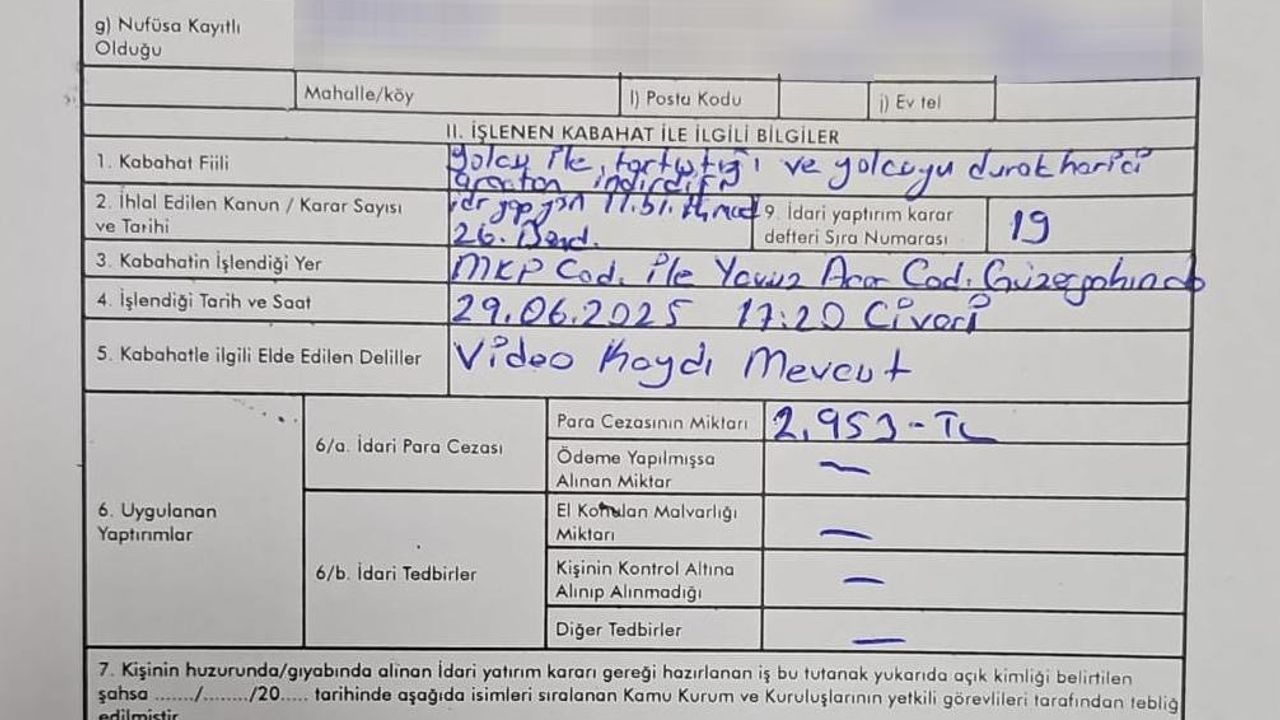 g) Nufüsa Kayıtlı
Olduğu
Mahalle/köy
I) Posta Kodu
j) Ev tel
II. İŞLENEN KABAHAT İLE İLGİLİ BİLGİLER
1. Kabahat Fiili
yolcu ile, tartıştığı ve yolcuyu durak harici
araçtan indirdiği
2. İhlal Edilen Kanun / Karar Sayısı
ve Tarihi
26. Bend.
9. İdari yaptırım karar
defteri Sıra Numarası
19
3. Kabahatin İşlendiği Yer
MKP Cad. ile Yavuz Acar Cad. Güzergahında
4. İşlendiği Tarih ve Saat
29.06.2025 17:20 Civarı
5. Kabahatle ilgili Elde Edilen Deliller
Video Kaydı Mevcut
6. Uygulanan
Yaptırımlar
6/a. İdari Para Cezası
Para Cezasının Miktarı
2.953-TL
Ödeme Yapılmışsa
Alınan Miktar
—
6/b. İdari Tedbirler
El Konulan Malvarlığı
Miktarı
—
Kişinin Kontrol Altına
Alınıp Alınmadığı
—
Diğer Tedbirler
—
7. Kişinin huzurunda/gıyabında alinan İdari yatırım kararı gereği hazırlanan iş bu tutanak yukarıda açık kimliği belirtilen
şahsa ......./......../20..... tarihinde aşağıda isimleri sıralanan Kamu Kurum ve Kuruluşlarının yetkili görevlileri tarafından tebliğ
edilmiştir